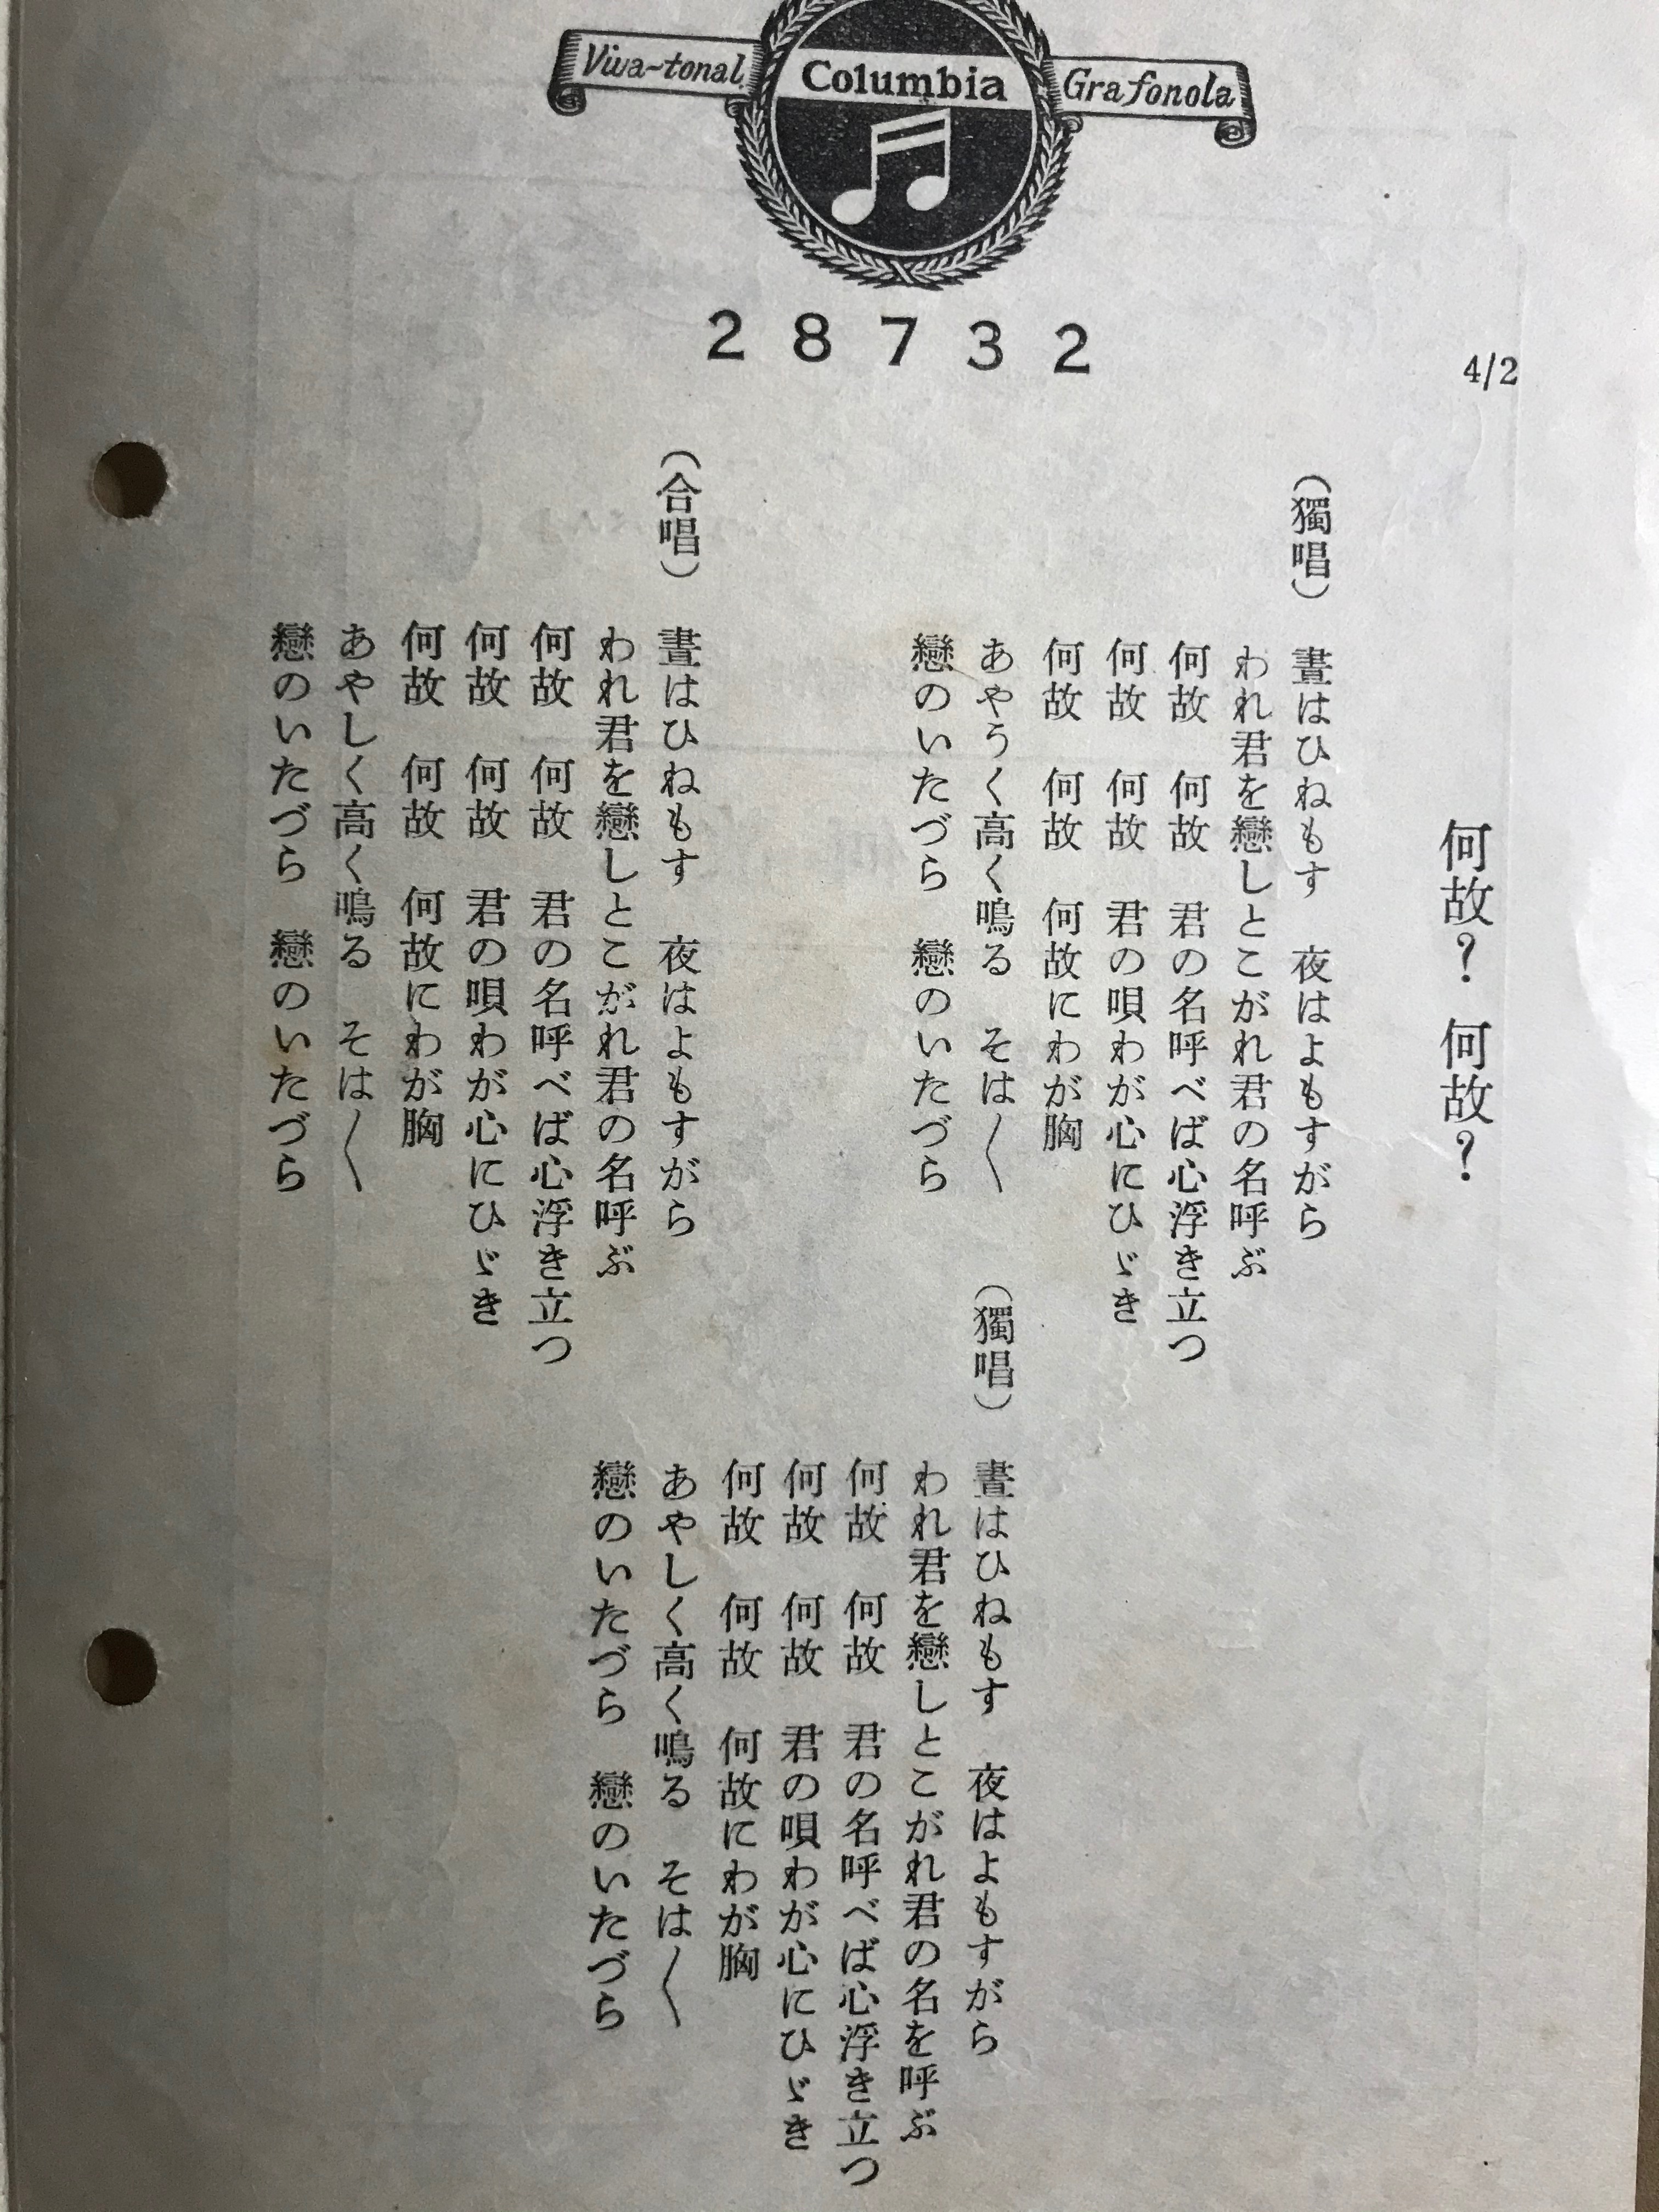 Viva-tonal Columbia Grafonola
28732
4/2
何故? 何故?
(獨唱) 晝はひねもす 夜はよもすがら
われ君を戀しとこがれ君の名呼ぶ
何故 何故 君の名呼べば心浮き立つ
何故 何故 君の唄わが心にひゞき
何故 何故 何故にわが胸
あやうく高く鳴る そは〱
戀のいたづら 戀のいたづら
(獨唱) 晝はひねもす 夜はよもすがら
われ君を戀しとこがれ君の名を呼ぶ
何故 何故 君の名呼べば心浮き立つ
何故 何故 君の唄わが心にひゞき
何故 何故 何故にわが胸
あやしく高く鳴る そは〱
戀のいたづら 戀のいたづら
(合唱) 晝はひねもす 夜はよもすがら
われ君を戀しとこがれ君の名呼ぶ
何故 何故 君の名呼べば心浮き立つ
何故 何故 君の唄わが心にひゞき
何故 何故 何故にわが胸
あやしく高く鳴る そは〱
戀のいたづら 戀のいたづら